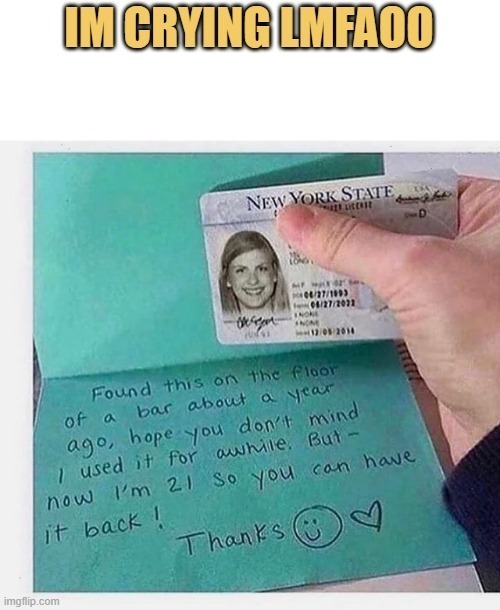 IM CRYING LMFAOO
NEW YORK STATE
USA
D
06/27/1993
06/27/2022
NONE
NONE
12/05/2016
Found this on the floor
of a bar about a year
ago, hope you don't mind
I used it for awhile. But-
now I'm 21 so you can have
it back!
Thanks
imgflip.com